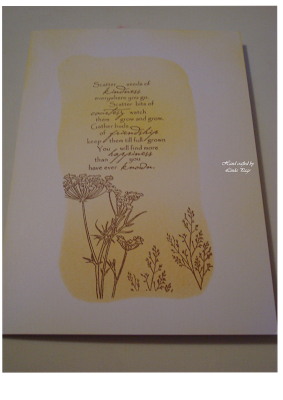 Scatter seeds of
kindness
everywhere you go.
Scatter bits of
courtesy watch
them grow and grow.
Gather buds
of friendship
keep them till full-grown
You will find more
happiness
than you
have ever known.
Hand crafted by
Linda Page